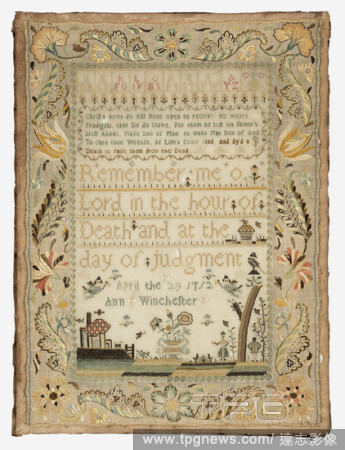 Christ's Arms do still stand open to receive All weary
Prodigals, that Sin do leave, For them he left his Father's
blest Abode, Made Son of Man to make Man Son of God
To cure their Wounds, he Life's Elixir and dy'd a
Death to raise them from the Dead
Remember me o
Lord in the hour of
Death and at the
day of judgment
April the 29 1752
Ann Winchester
www.tpgnews.com/ 達志影像